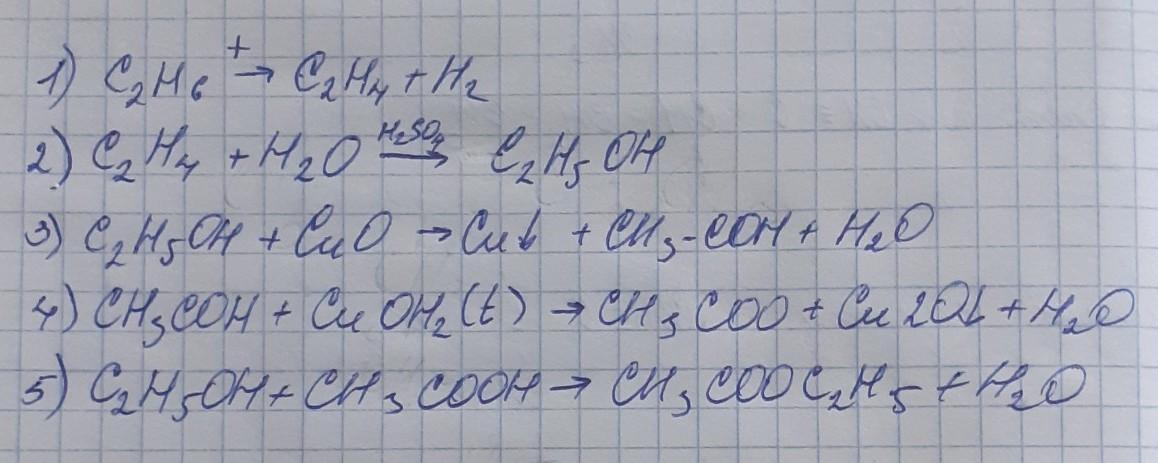 1) C₂H₆ →⁺ C₂H₄ + H₂
2) C₂H₄ + H₂O →(H₂SO₄) C₂H₅OH
3) C₂H₅OH + CuO → Cu↓ + CH₃-COH + H₂O
4) CH₃COH + CuOH₂(t) → CH₃COO + Cu2O↓ + H₂O
5) C₂H₅OH + CH₃COOH → CH₃COOC₂H₅ + H₂O